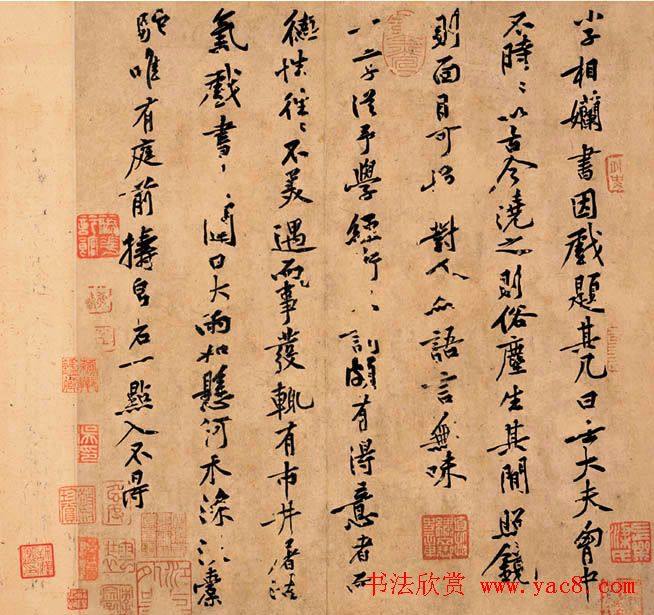 小子相嬾書因戲題其几曰士大夫胸中
不時〻以古今澆之則俗塵生其間照鏡
則面目可憎對人亦語言無味
一二子從予學經行訓頗有得意者而
德性往〻不美遇事發輒有市井屠沽
氣戲書〻日大雨如懸河水深
駝唯有庭前擣帛石一點入不得
书法欣赏 www.yac8.com